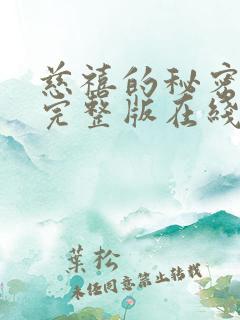 慈禧的秘密
完整版在綫
葉松
未任同意禁止转载